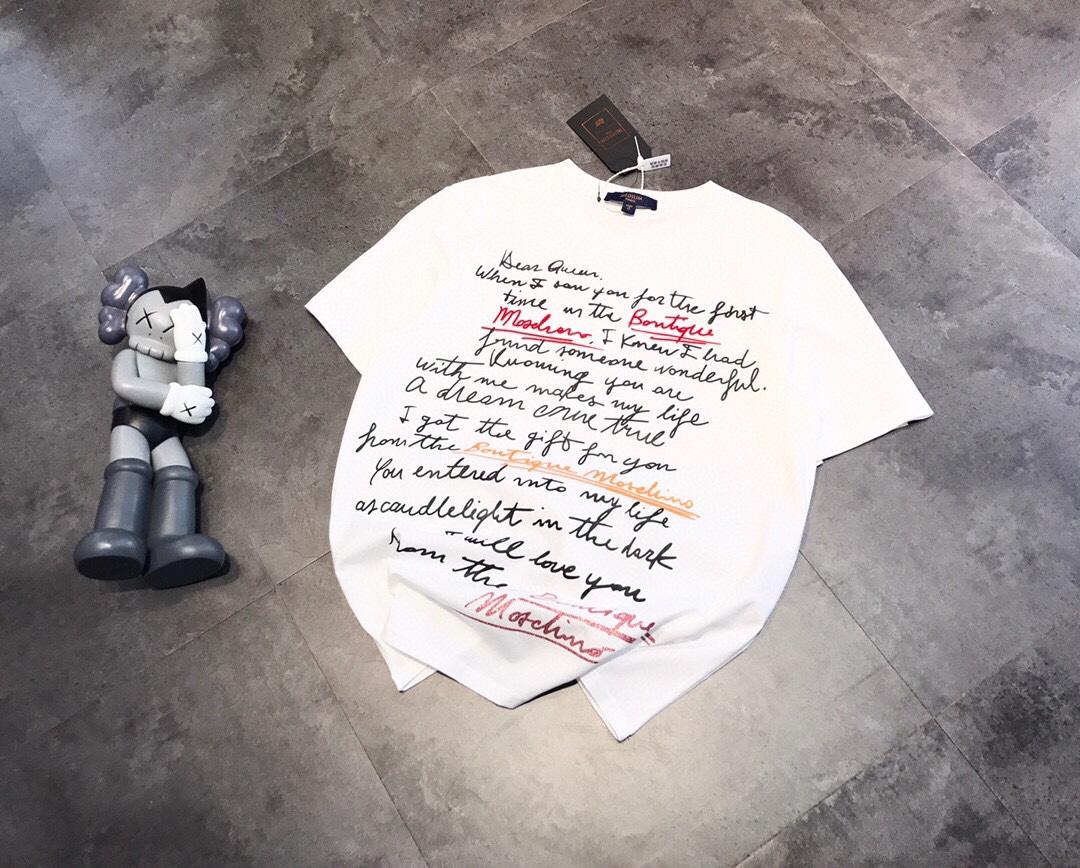 Dear Queen.
When I saw you for the first
time in the Boutique
Moschino, I Knew I had
found someone wonderful.
Knowing you are
with me makes my life
A dream come true
I got the gift for you
from the Boutique Moschino
You entered into my life
as candlelight in the dark
I will love you
from the Boutique
Moschino